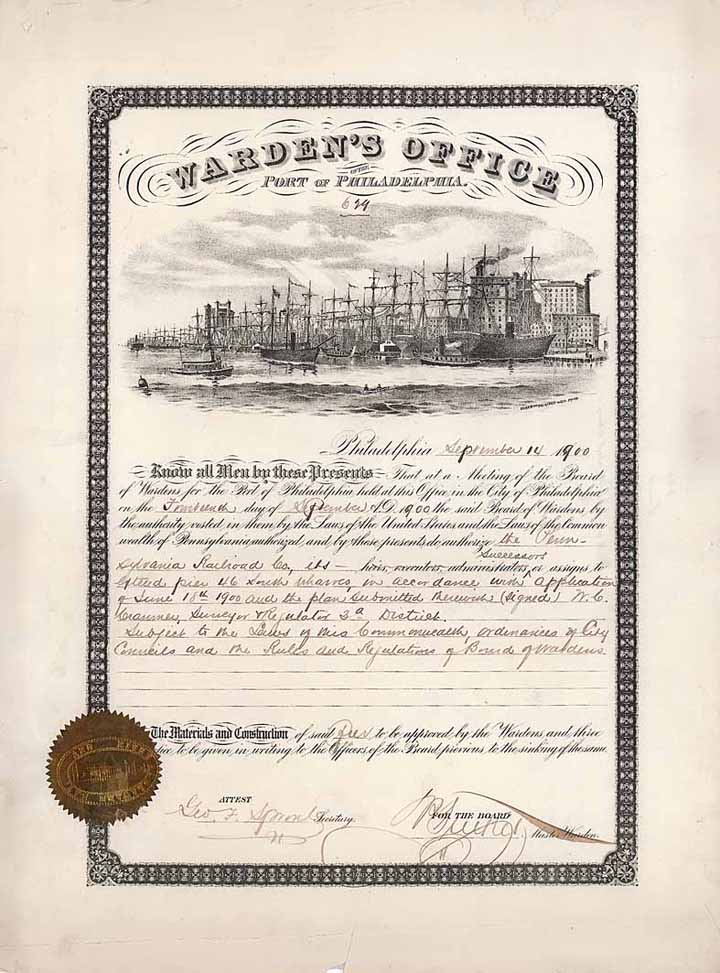 WARDEN'S OFFICE
OF THE
PORT OF PHILADELPHIA.
629
Philadelphia September 14 1900
Know all Men by these Presents That at a Meeting of the Board
of Wardens, for the Port of Philadelphia held at this Office in the City of Philadelphia
on the Fourteenth day of September A.D. 1900 the said Board of Wardens by
the authority vested in them by the Laws of the United States and the Laws of the Common
wealth of Pennsylvania, authorized, and by these presents do authorize the Penn-
Successors
sylvania Railroad Co, its heirs, executors, administrators, or assigns to
Extend pier 46 South wharves, in accordance with application
of June 18th 1900 and the plan submitted therewith (signed) W. C.
Cranmer, Surveyor & Regulator 3d District.
Subject to the Laws of this Commonwealth, ordinances of City
Councils and the Rules and Regulations of Board of Wardens.
The Materials and Construction of said Pier to be approved by the Wardens, and three
to be given, in writing to the Officers of the Board previous to the sinking of the same.
ATTEST
Geo. F. Sproule Secretary.
FOR THE BOARD
Master Warden.